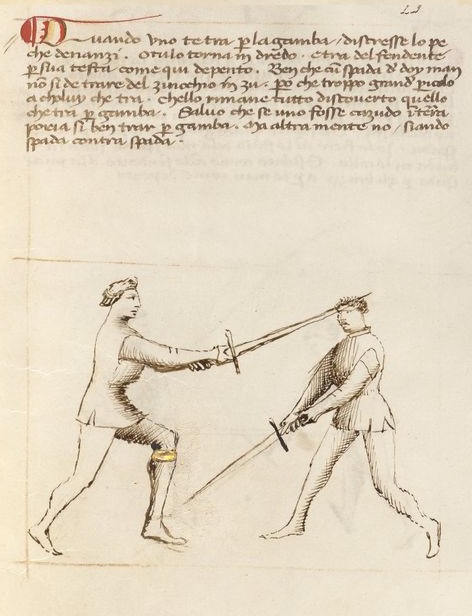 Quando uno te tra per la gamba, discresse lo pe
che denanzi. O tu lo torna in dredo. E tra del fendente
per sua testa come qui depento. Ben che cum spada d' doy man
non si de trare del zinochio in zu. Per che troppo grand' piculo
a choluy che tra. Ch'ello rimane tutto discoverto quello
che tra per gamba. Salvo che se uno fosse cazudo in tera
poria si ben trar per gamba. Ma altra mente no, siando
spada contra spada.